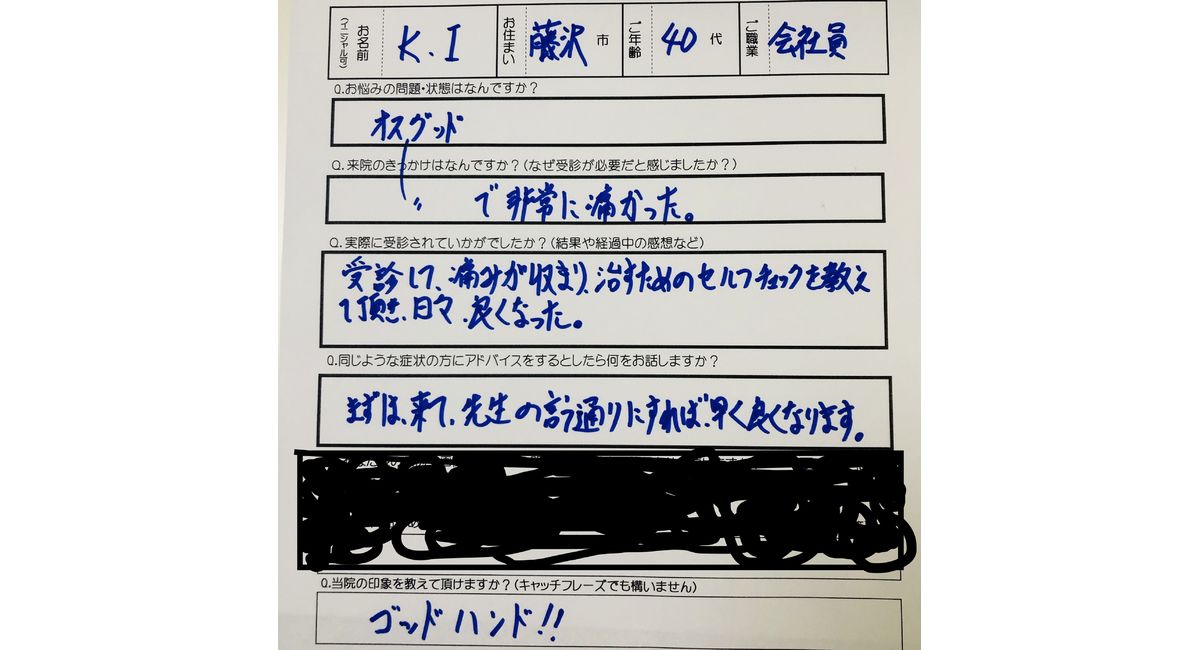 お名前 (イニシャル可) K.I お住まい 藤沢 市 ご年齢 40 代 ご職業 会社員
Q.お悩みの問題・状態はなんですか?
オスグッド
Q.来院のきっかけはなんですか?(なぜ受診が必要だと感じましたか?)
〃 で非常に痛かった。
Q.実際に受診されていかがでしたか?(結果や経過中の感想など)
受診して、痛みが収まり、治すためのセルフチェックを教え
て頂き、日々、良くなった。
Q.同じような症状の方にアドバイスをするとしたら何をお話しますか?
まずは、来て、先生の言う通りにすれば、早く良くなります。
Q.当院の印象を教えて頂けますか?(キャッチフレーズでも構いません)
ゴッドハンド!!